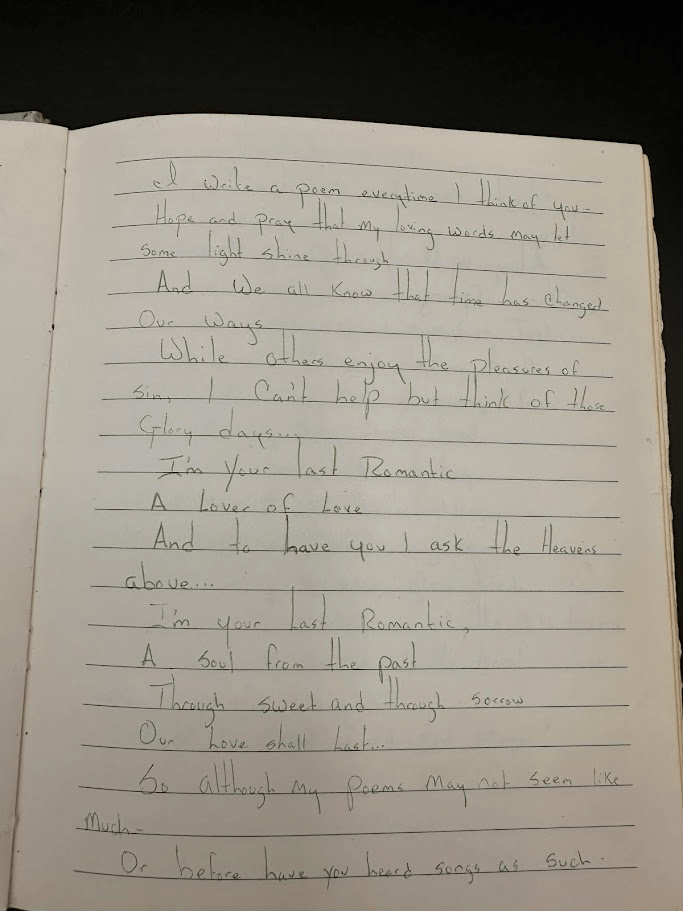 I write a poem everytime I think of you...
Hope and pray that my loving words may let
some light shine through
And We all Know that time has changed
Our Ways
While others enjoy the pleasures of
sin, I Can't help but think of those
Glory days...
I'm Your last Romantic
A Lover of Love
And to have you I ask the Heavens
above...
I'm your Last Romantic,
A Soul from the past
Through sweet and through sorrow
Our Love shall Last...
So although My poems May not seem like
Much-
Or before have you heard songs as such.